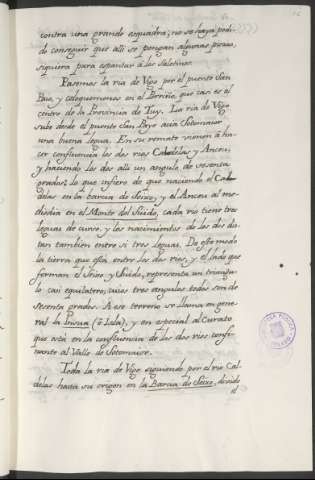 contra una grande esquadra; no se haya podi-
do conseguir que alli se pongan algunas piezas,
siquiera para espantar à los Saletinos.
Pasemos la ria de Vigo por el puente San
Payo, y coloquemonos en el Braña, que casi es el
centro de la Provincia de Tuy. La ria de Vigo
sube desde el puente San Payo acia Sotomaior
una buena legua. En su remate vienen à ha-
cer confluencia los dos rios Caldelas y Anceu,
y haciendo los dos alli un angulo de sesenta
grados, lo que infiero de que naciendo el Calde-
las en la barcia de Seixo, y el Anceu al me-
diodia en el Monte del Suido, cada rio tiene tres
leguas de curso, y los nacimientos de los dos dis-
tan tambien entre si tres leguas. De este modo
la tierra que está entre los dos rios, y el lado que
forman el Seixo y Suido, representa un triangu-
lo casi equilatero, cuios tres angulos todos son de
sesenta grados. A ese terreno se llama en gene-
ral la Insua (ò Isla), y en especial al Curato
que está en la confluencia de los dos rios confi-
nante al Valle de Sotomaior.
Toda la ria de Vigo siguiendo por el rio Cal-
delas hasta su origen en la Barcia de Seixo, divide
el